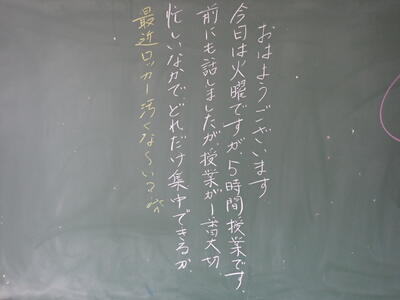 おはようございます
今日は火曜ですが、5時間授業です。
前にも話しましたが、授業が1番大切
忙しいなかでどれだけ集中できるか、
最近ロッカー汚くな〜い？